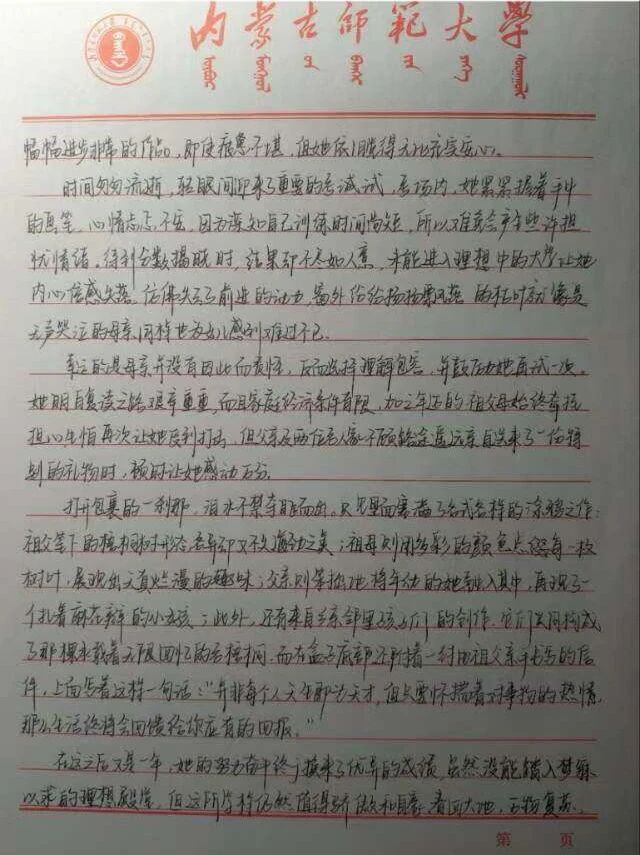 内蒙古师范大学
幅幅进步非常的作品，即使疲惫不堪，但她依旧觉得无比充实安心。
时间匆匆流逝，转眼间迎来了重要的考试，考场内，她紧紧握着手中
的画笔，心情忐忑不安，因为深知自己训练时间尚短，所以难免会产生些许担
忧情绪。待到分数揭晓时，结果却不尽如人意，未能进入理想中的大学让她
内心倍感失落，仿佛失去了前进的动力，窗外纷纷扬扬飘落的
无声哭泣的母亲同样也为她感到难过不已。
幸运的是母亲并没有因此而责怪，反而选择理解包容，并鼓励她再试一次。
她明白复读之路艰辛重重，而且家庭经济条件有限，加之年迈的祖父母始终牵挂
担心生怕再次让她受到打击，但父亲及两位老人家不顾路途遥远亲自送来了一份特
别的礼物时，顿时让她感动万分。
打开包裹的一刹那，泪水不禁夺眶而出。只见里面塞满了各式各样的涂鸦之作：
祖父笔下的梧桐树形态各异却又不失生动之美；祖母则用多彩的颜色点缀每一枚
树叶，展现出天真烂漫的趣味；父亲则笨拙地将年幼的她融入其中，再现了一
个扎着麻花辫的小女孩；此外，还有来自亲邻里孩子们的创作，它们共同构成
了那棵承载着无限回忆的老梧桐。而在盒子底部还附着一封由祖父亲手书写的信
件，上面写着这样一句话："并非每个人天生即为天才，但只要怀揣着对事物的热情，
那么生活终将会回馈给你应有的回报。"
在这之后又是一年，她的努力奋斗终于换来了优异的成绩，虽然没能踏入梦寐
以求的理想殿堂，但这所学校仍然值得骄傲和自豪。春回大地，万物复苏，
第 页